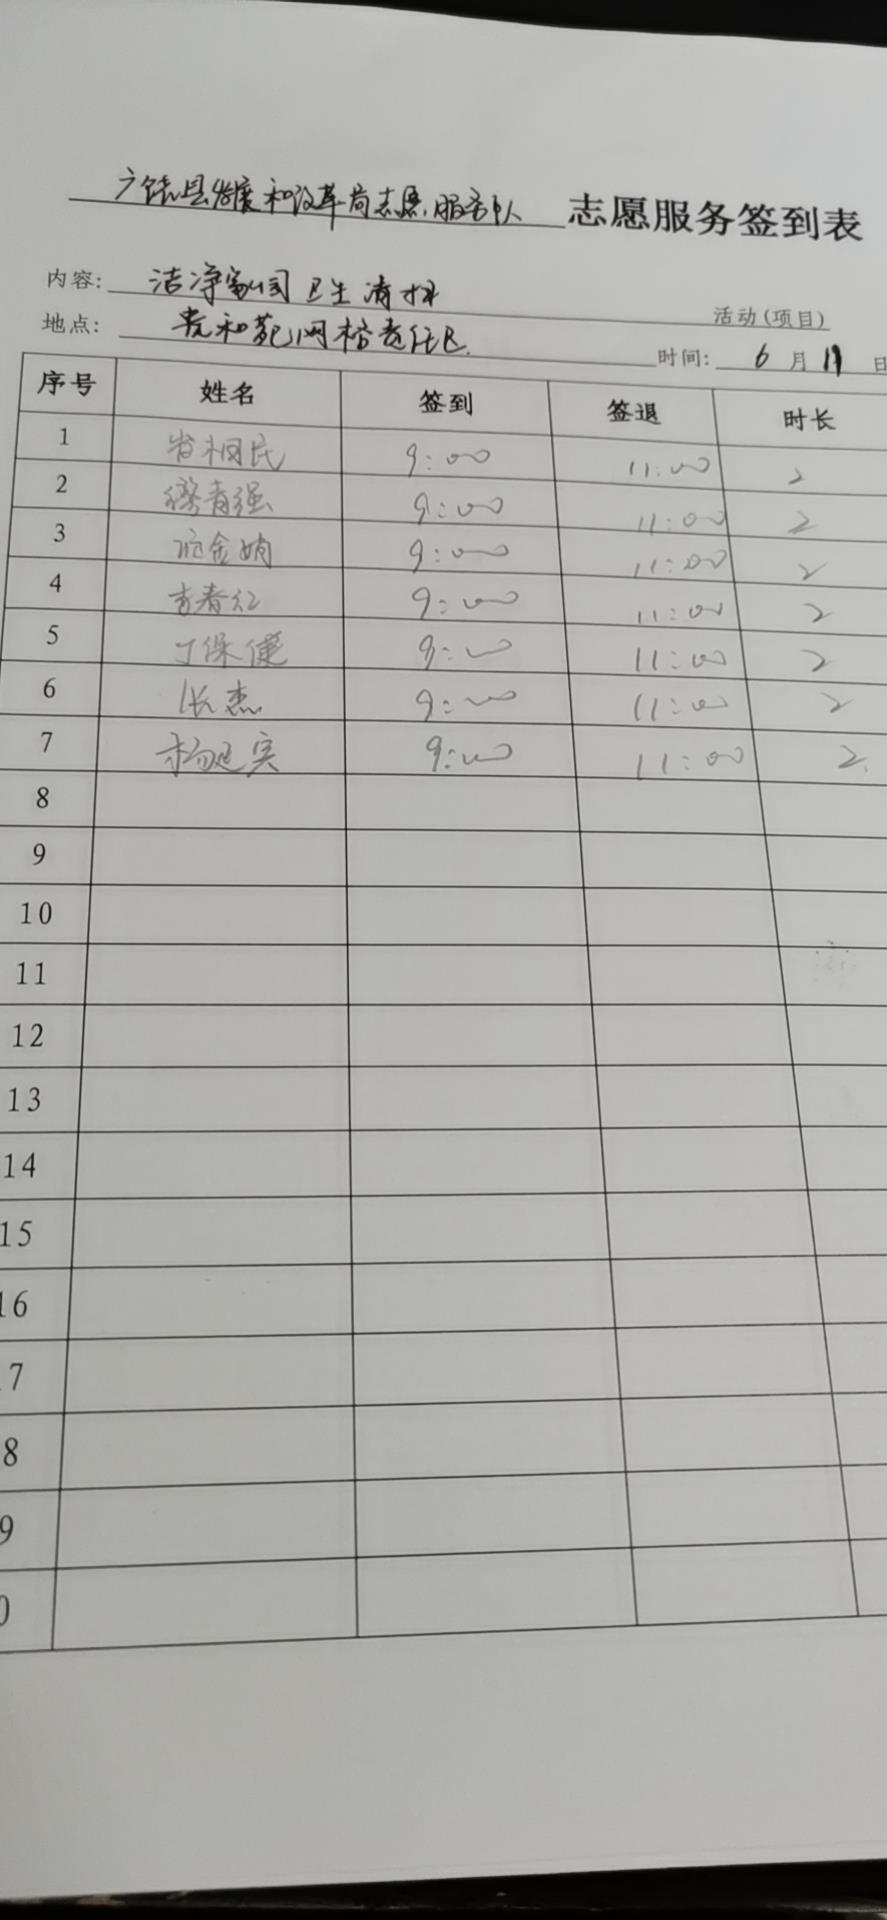 广饶县发展和改革局志愿服务队 志愿服务签到表
内容: 洁净家园卫生清扫 活动(项目)
地点: 贵和苑网格责任区
时间: 6 月 11 日
序号 姓名 签到 签退 时长
1 9:00 11:00 2
2 青强 9:00 11:00 2
3 金娟 9:00 11:00 2
4 李春红 9:00 11:00 2
5 丁保健 9:00 11:00 2
6 张杰 9:00 11:00 2
7 杨延宾 9:00 11:00 2.
8
9
10
11
12
13
14
15
16
7
8
9
0